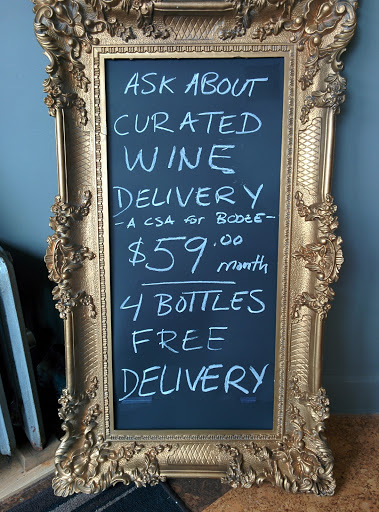 ASK ABOUT
CURATED
WINE
DELIVERY
- A CSA for BOOZE -
$59.00
month
4 BOTTLES
FREE
DELIVERY